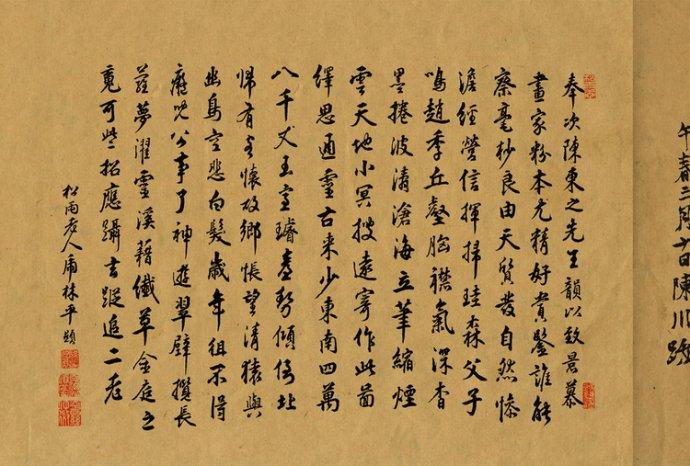 奉次陳東之先生韻以致景慕
畫家粉本尤精好賞鑒誰能
察毫杪良由天質發自然慘
澹經營信揮掃珪森父子
鳴趙季丘壑胸襟氣深杳
墨捲波濤滄海立筆縮煙
雲天地小冥搜遠寄作此圖
繹思通靈古來少東南四萬
八千丈玉室璿臺勢傾倚北
歸有客懷故鄉悵望清猿與
幽鳥空悲白髮歲年徂不得
癡兒公事了神遊翠壁攬長
蘿夢濯靈溪藉纖草金庭之
竟可些招應躡玄蹤追二老
松雨老人虎林平顯